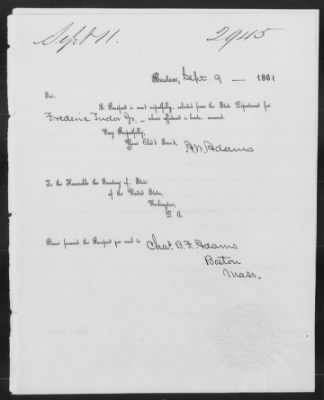 Sept 11. 2945
Boston, Sept. 9 — 1881
Sir:
A Passport is most respectfully solicited from the State Department for
Frederic Tudor Jr. — whose affidavit is hereto annexed.
Very Respectfully,
Your Obd't Serv't,
Adams
To the Honorable the Secretary of State
of the United States,
Washington,
D. C.
Please forward the Passport per mail to Chas. B. F. Adams
Boston
Mass.